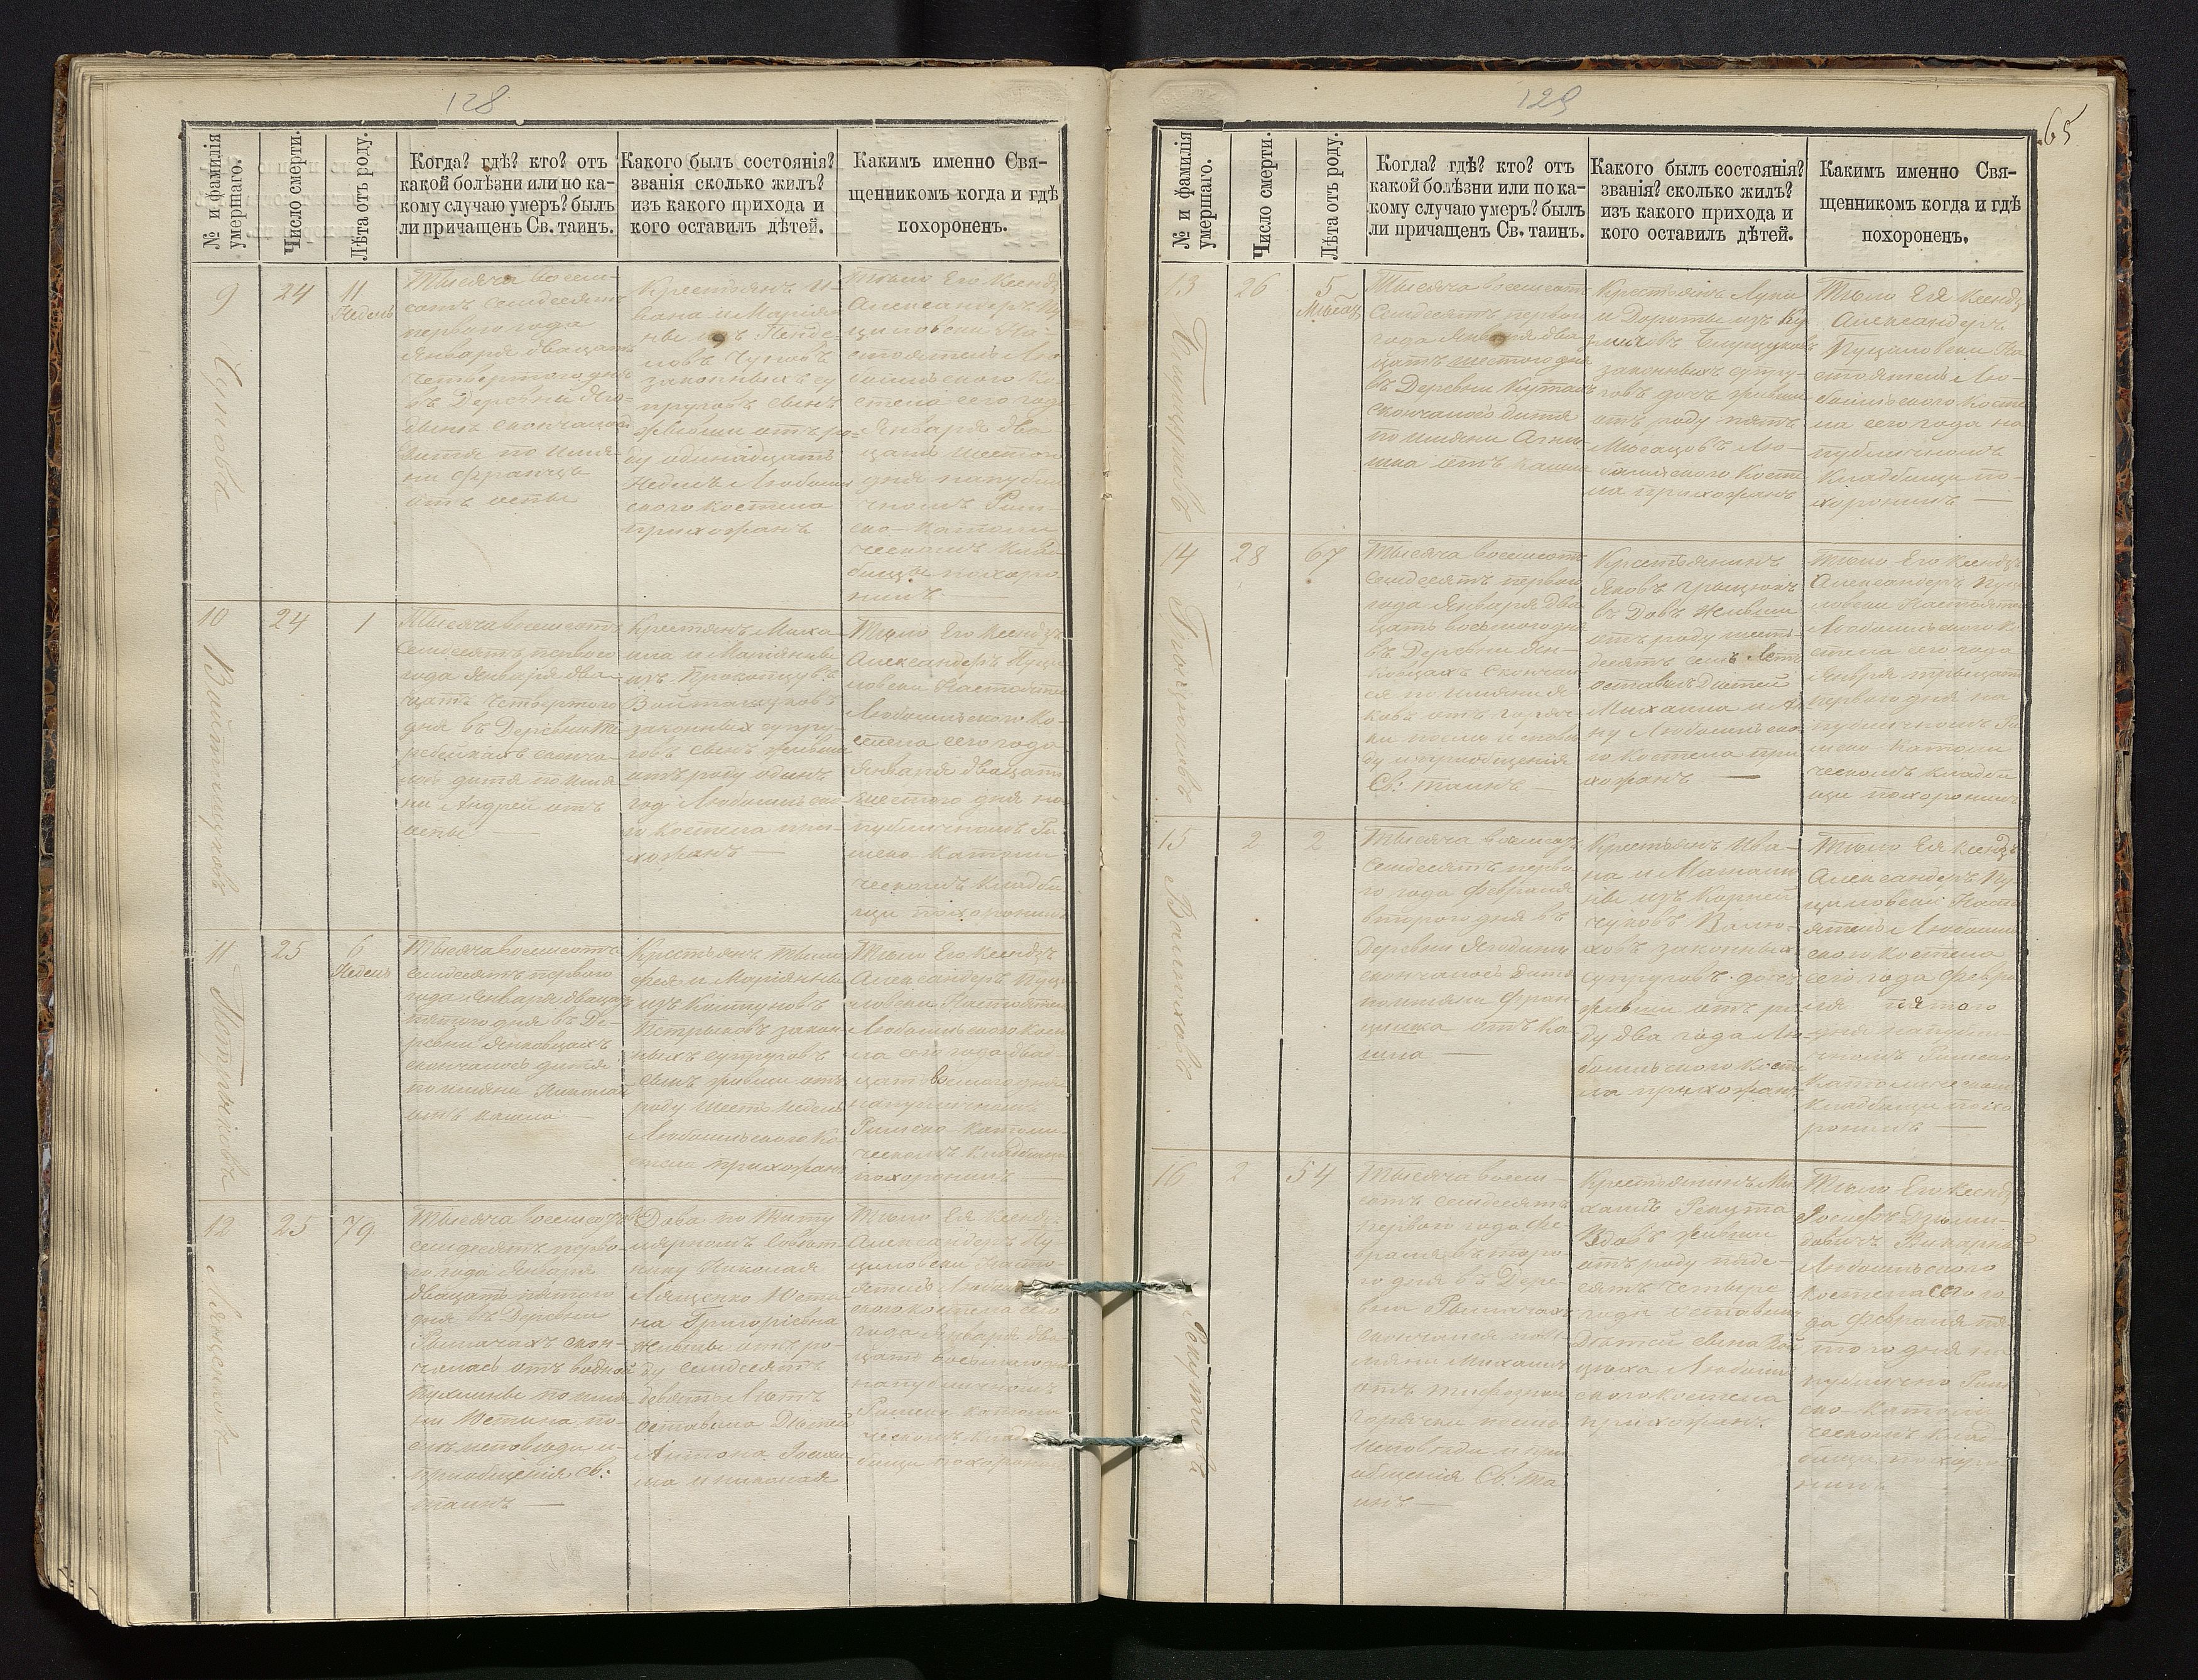 128
№ и фамилія умершаго.
Число смерти.
Лѣта отъ роду.
Когда? гдѣ? кто? отъ
какой болѣзни или по ка-
кому случаю умеръ? былъ
ли причащенъ Св. таинъ.
Какого былъ состоянія?
званія сколько жилъ?
изъ какого прихода и
кого оставилъ дѣтей.
Какимъ именно Свя-
щенникомъ когда и гдѣ
похороненъ.
9
24
11
Недель
Тысяча восем-
сотъ семьдесятъ
перваго года
Января двацать
четвертого дня
въ Деревни Яго-
дынъ скончалось
Дитя по имя-
ни Францъ
отъ оспы
Крестьянъ И-
вана и Маріян-
ны изъ
законныхъ су-
пруговъ сынъ
живши отъ ро-
ду одинадцать
Недель Любомль
ского костела
прихожанъ
Тѣло Его Ксендзъ
Александеръ Пу
циловски На-
стоятель Лю
бомльского Ко
стела сего года
Января два
цать шестого
дня на публи
чномъ Рим-
ско-Католи
ческомъ Клад
бищи похоро
нилъ
10
24
1
Тысяча восемсотъ
Семдесятъ первого
года Января два-
цать четвертого
дня въ Деревни
сконча-
лось дитя по имя
ни Андрей отъ
оспы —
Крестянъ Миха
ила и Маріянны
изъ Прокопчу
Войталюковъ
законныхъ супру-
говъ сынъ живши
отъ роду одинъ
годъ Любомльско
го Костела при-
хожанъ —
Тѣло Его Ксендзъ
Александеръ Пуци
ловски Настоятель
Любомльского Ко-
стела сего года
Января двацать
шестого дня на
публичномъ Ри-
мско Католи
ческомъ Кладби
щи похоронилъ
11
25
6
Недель
Тысяча восемсотъ
семдесятъ первого
года Января двацать
пятого дня въ Де-
ревни Янковцахъ
скончалось дитя
по имяни Николай
отъ кашля —
Крестьянъ Тимо
фея и Маріянны
изъ
Петрыковъ закон
ныхъ супруговъ
сынъ живши отъ
роду шесть недель
Любомльского Ко-
стела прихожанъ
Тѣло Его Ксендзъ
Александеръ Пуци
ловски Настоятель
Любомльского Косте
ла сего года двад-
цать восмого дня
на публичномъ
Римско Католи-
ческомъ Кладбищи
похоронилъ —
12
25
79
Тысяча восемсотъ
семдесятъ перво-
го года Января
двацать пятого
дня въ Деревни
Рымачахъ скон-
чалась отъ водной
пухлины по имя
ни Юстына по-
слѣ исповѣди и
приобщенія Св:
таинъ —
Дова по Титу
лярномъ Совѣт-
нику Николая
Лященко Юсты
на Григоріевна
живши отъ ро-
ду семдесятъ
девять Лѣтъ
оставила Дѣтей
Антона
и Николая
Тѣло Ея Ксендзъ
Александеръ Пу-
циловски Насто
ятель Любомль
ского костела сего
года Января два
цать восмого дня
на публичномъ
Римско Католи
ческомъ Клад
бищи похоронилъ
129
65
№ и фамилія умершаго.
Число смерти.
Лѣта отъ роду.
Когда? гдѣ? кто? отъ
какой болѣзни или по ка-
кому случаю умеръ? былъ
ли причащенъ Св. таинъ.
Какого былъ состоянія?
званія? сколько жилъ?
изъ какого прихода и
кого оставилъ дѣтей.
Какимъ именно Свя-
щенникомъ когда и гдѣ
похороненъ.
13
26
5
Мѣсяц
Тысяча восемсотъ
Семдесятъ первого
года Января два
цать шестого дня
въ Деревни
Скончалось дитя
по имяни Агни-
шка отъ кашля
Крестьянъ Луки
и Дороты изъ
законныхъ супру-
говъ дочь живши
отъ роду пять
Мѣсяцовъ Лю-
бомльского Косте
ла прихожанъ
Тѣло Ея Ксендзъ
Александеръ
Пуциловски На
стоятель Лю-
бомльского Косте
ла сего года на
публичномъ
Кладбищи по-
хоронилъ —
14
28
67
Тысяча восемсотъ
семдесятъ первого
года Января два
цать восьмого дня
въ Деревни Ян-
ковцахъ Скончал
ся по имяни Я
ковъ отъ горяч
ки после испове
ди и приобщенія
Св: таинъ —
Крестьянинъ
Яковъ Троцюкъ
въ Довъ живши
отъ роду шесть-
десятъ семь Летъ
оставилъ Дѣтей
Михаила и Ан
ну Любомльско
го Костела при
хожанъ —
Тѣло Его Ксендзъ
Александеръ Пуци
ловски Настоятель
Любомльского Ко
стела сего года
Января трыцать
первого дня на
публичномъ Ри
мско Католи
ческомъ кладби
щи похоронилъ
15
2
2
Тысяча восемсотъ
Семдесятъ перво
го года Февраля
второго дня въ
Деревни Ягодинъ
скончалось дитя
по имяни Фран-
цишка отъ ка-
шля —
Крестьянъ Ива-
на и
изъ Корней
чуковъ
законныхъ
супруговъ дочь
живши отъ ро
ду два года Лю-
бомльского Косте
ла прихожанъ
Тѣло Ея Ксендзъ
Александеръ Пу-
циловски Насто
ятель Любомль
ского Костела
сего года Февра
ля пятого
дня на публи-
чномъ Римско
Католическомъ
Кладбищи похо
ронилъ —
16
2
54
Тысяча восем-
сотъ семдесятъ
первого года Фе-
враля второ-
го дня въ Дере-
вни Рымачахъ
скончался по и-
мяни Михаилъ
отъ тифозной
горячки после
исповеди и при
общенія Св. Та
инъ —
Крестьянинъ Ми
хаилъ Рекута
Вдовъ живши
отъ роду пядe-
сятъ четыре
года оставилъ
Дѣтей сына Вой
цѣха Любомль
ского Костела
прихожанъ
Тѣло Его Ксендзъ
Викарны
Любомльского
Костела сего го
да Февраля пя
того дня на
публично Рим
ско Католи
ческомъ Клад
бищи похоро
нилъ
Рекутовъ